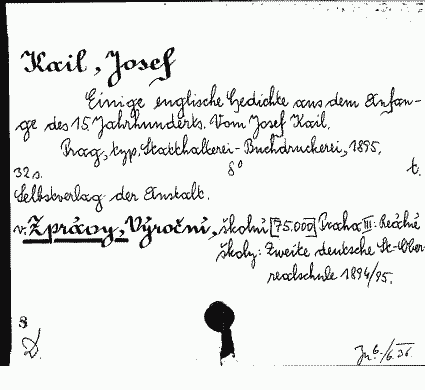 Kail, Josef
Einige englische Gedichte aus dem Anfan-
ge des 15. Jahrhunderts. Vom Josef Kail.
Prag, typ. Statthalterei-Buchdruckerei, 1895.
32 s. 8° t.
Selbstverlag der Anstalt.
v. Zprávy, Výroční, školní [75.000] Praha III: Reálné
školy: Zweite deutsche St-Ober-
realschule 1894/95.
8